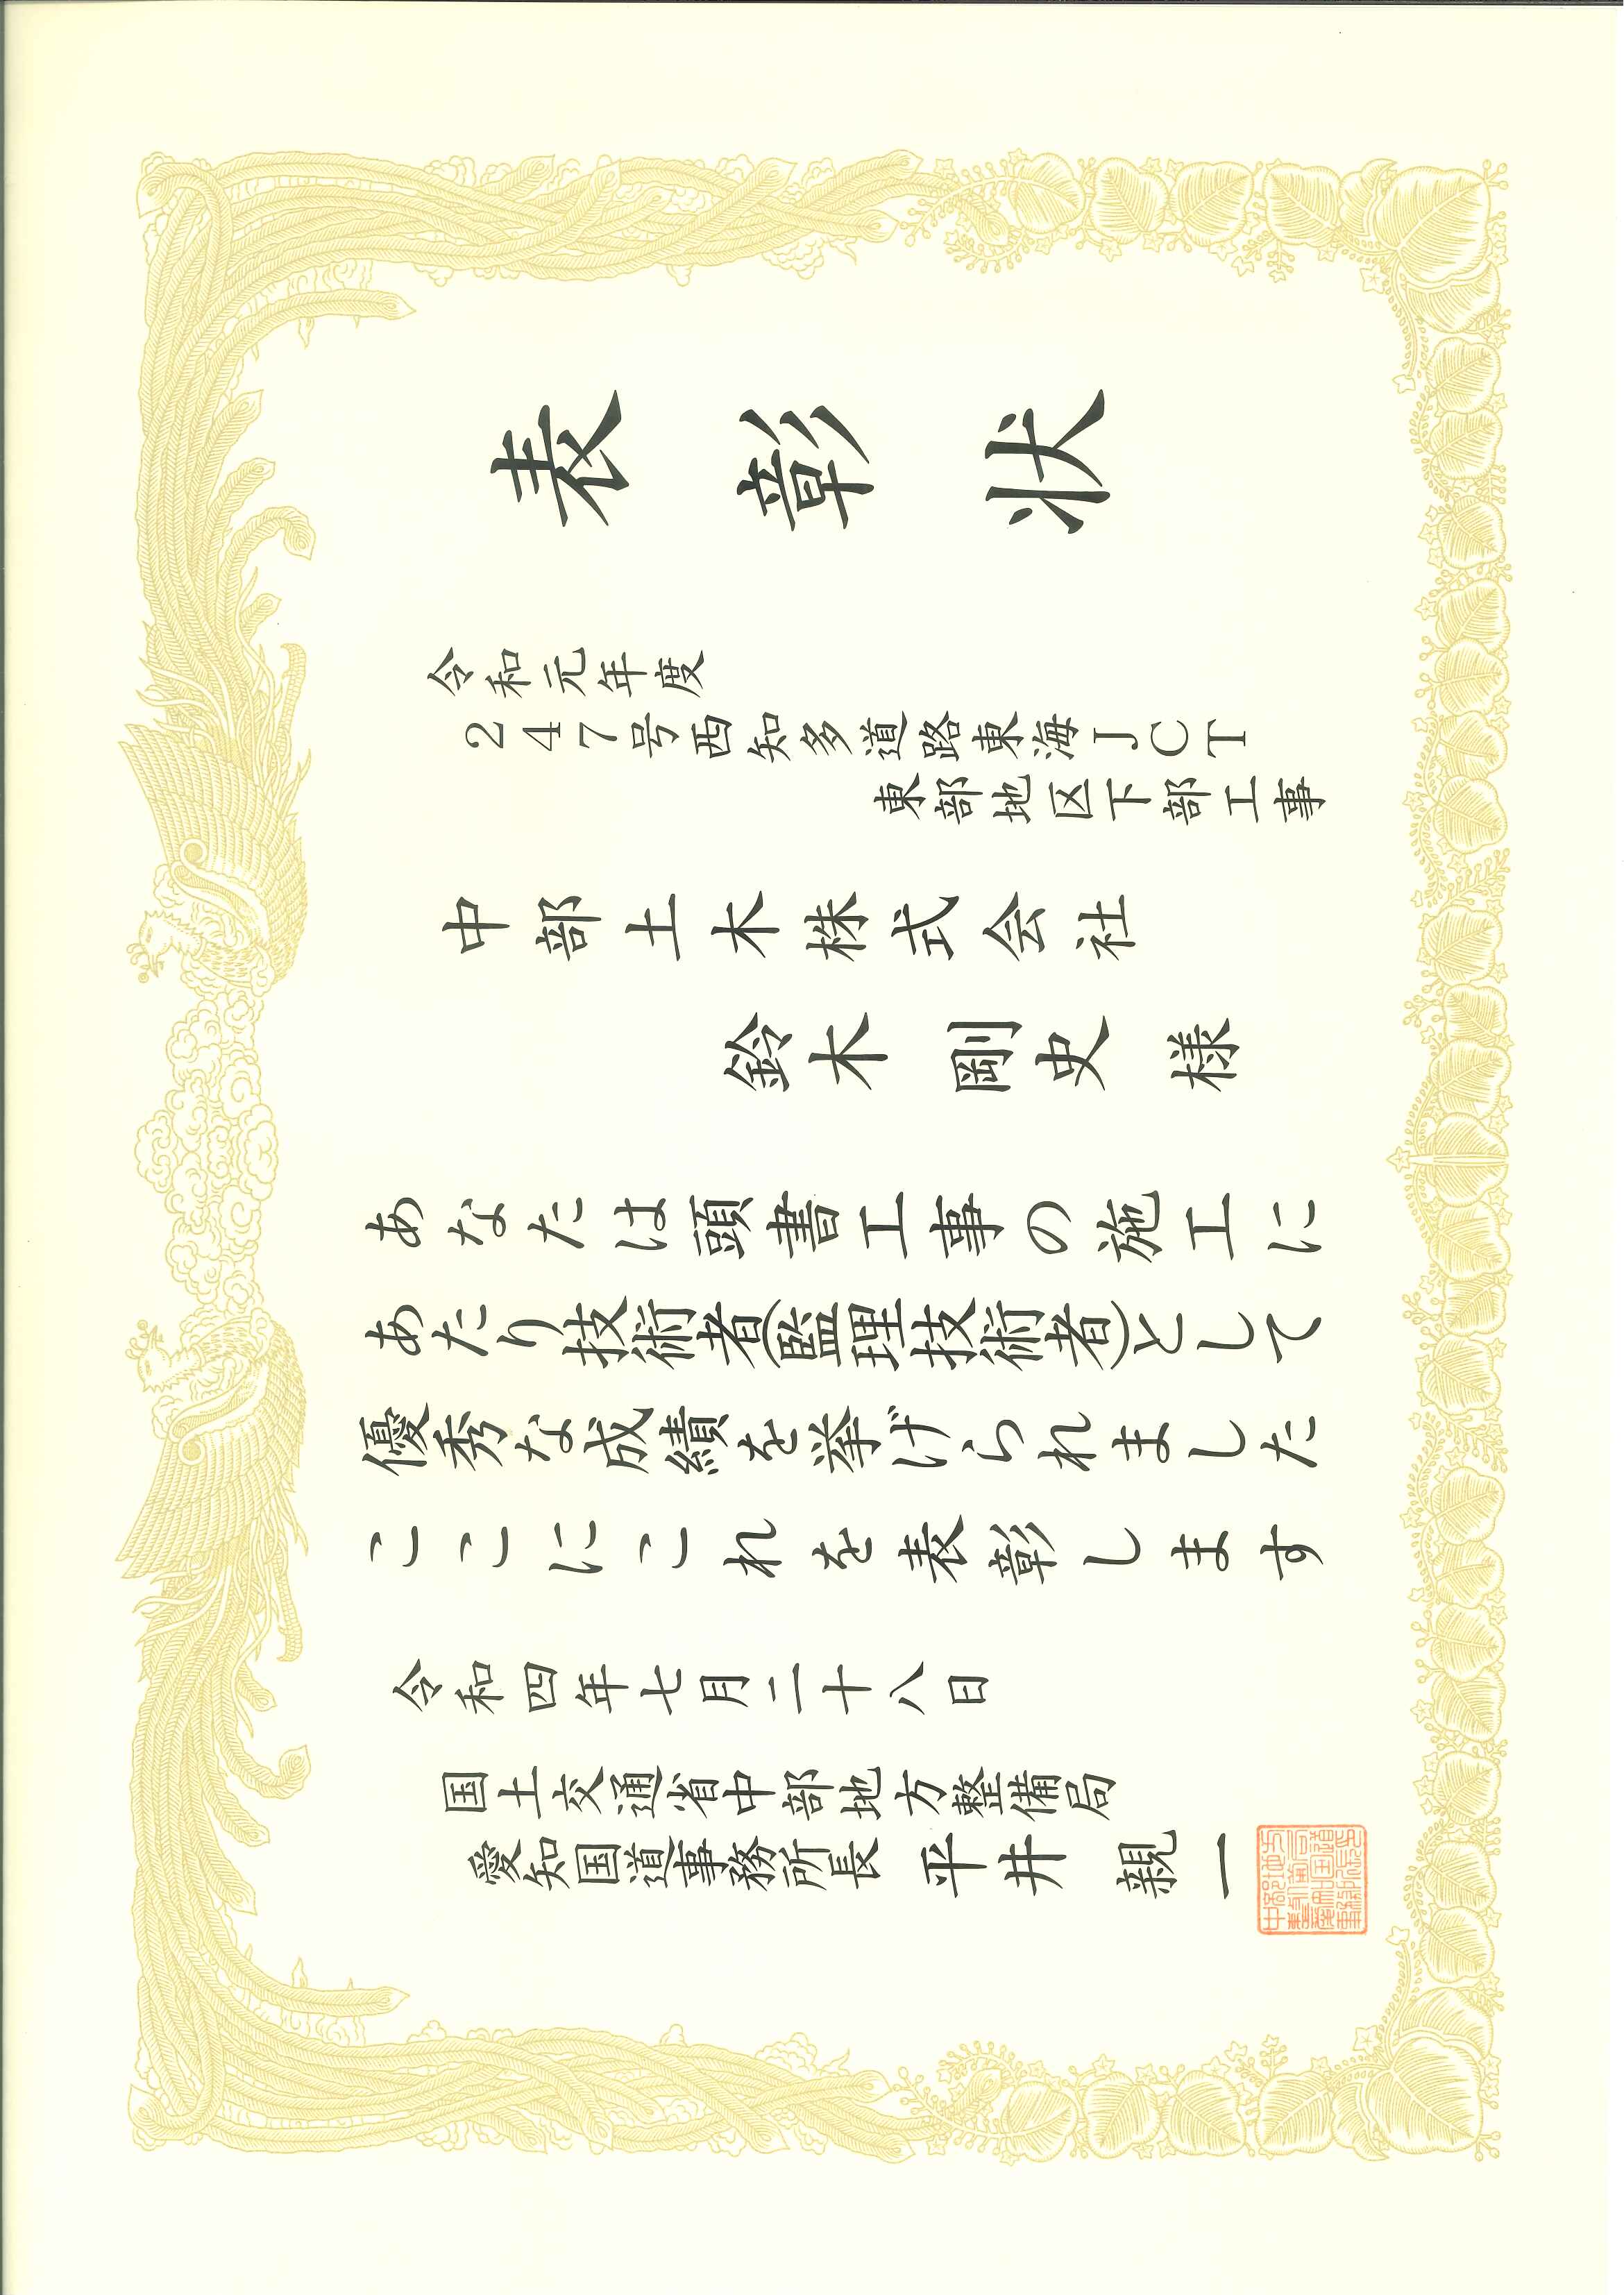 表彰状
令和元年度
247号西知多道路東海JCT
東部地区下部工事
中部土木株式会社
鈴木 剛史 様
あなたは頭書工事の施工に
あたり技術者(監理技術者)として
優秀な成績を挙げられました
ここにこれを表彰します
令和四年七月二十八日
国土交通省中部地方整備局
愛知国道事務所長 平井 親一